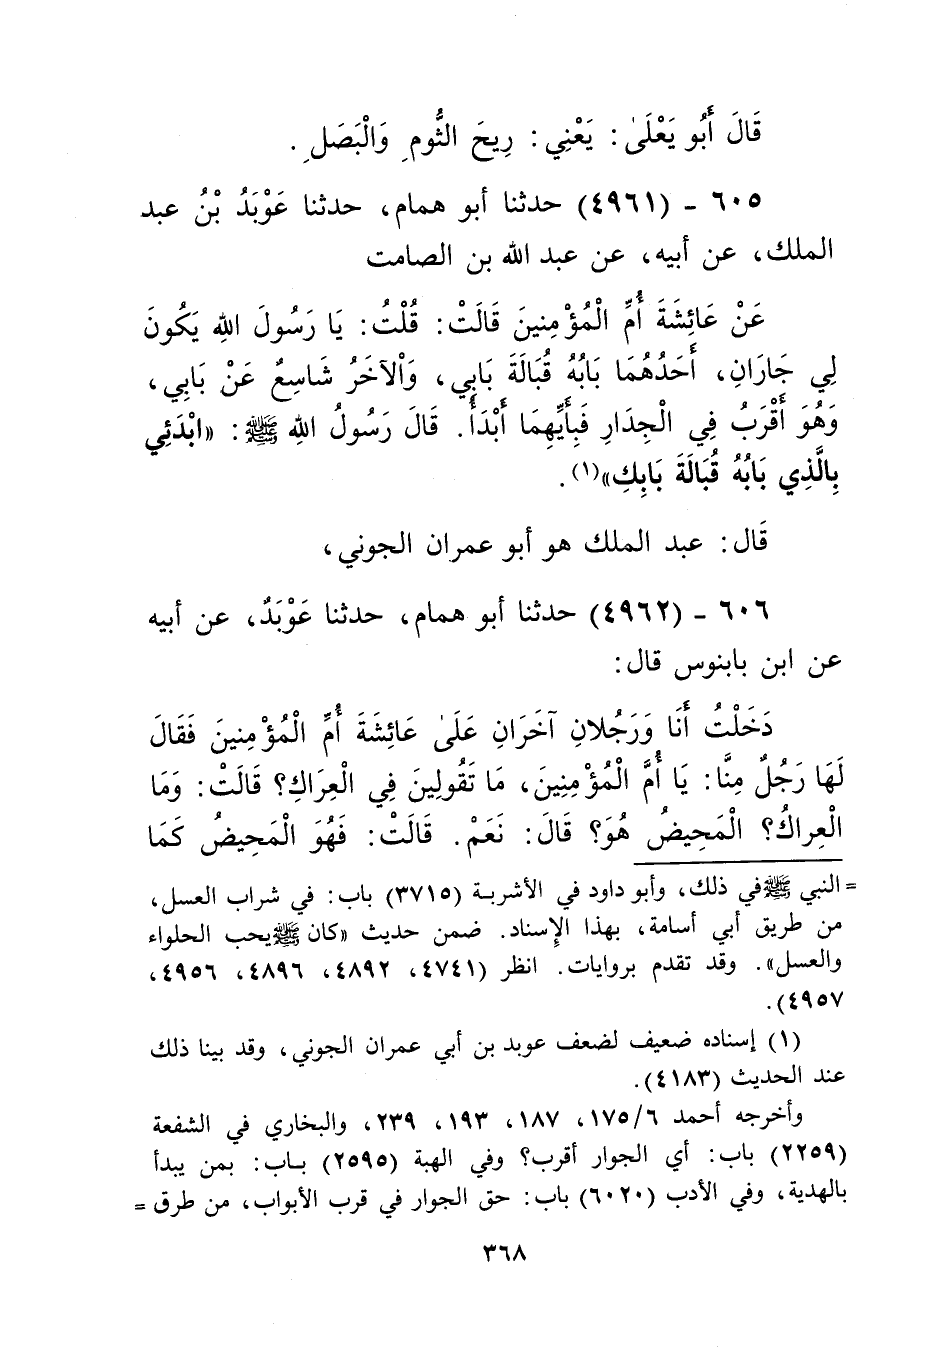 قَالَ أَبُو يَعْلَىٰ: يَعْنِي: رِيحَ الثُّومِ وَالْبَصَلِ.
٦٠٥ ـ (٤٩٦١) حدثنا أبو همام، حدثنا عَوْبَدُ بْنُ عبد
الملك، عن أبيه، عن عبد الله بن الصامت
عَنْ عَائِشَةَ أُمِّ الْمُؤْمِنِينَ قَالَتْ: قُلْتُ: يَا رَسُولَ اللهِ يَكُونَ
لِي جَارَانِ، أَحَدُهُمَا بَابُهُ قُبَالَةَ بَابِي، وَالْآخَرُ شَاسِعٌ عَنْ بَابِي،
وَهُوَ أَقْرَبُ فِي الْجِدَارِ فَبِأَيِّهِمَا أَبْدَأُ. قَالَ رَسُولُ اللهِ ﷺ: «ابْدَئِي
بِالَّذِي بَابُهُ قُبَالَةَ بَابِكِ»(١).
قَال: عبد الملك هو أبو عمران الجوني،
٦٠٦ ـ (٤٩٦٢) حدثنا أبو همام، حدثنا عَوْبَدٌ، عن أبيه
عن ابن بابنوس قال:
دَخَلْتُ أَنَا وَرَجُلانِ آخَرَانِ عَلَىٰ عَائِشَةَ أُمِّ الْمُؤْمِنِينَ فَقَالَ
لَهَا رَجُلٌ مِنَّا: يَا أُمَّ الْمُؤْمِنِينَ، مَا تَقُولِينَ فِي الْعِرَاكِ؟ قَالَتْ: وَمَا
الْعِراكُ؟ الْمَحِيضُ هُوَ؟ قَالَ: نَعَمْ. قَالَتْ: فَهُوَ الْمَحِيضُ كَمَا
= النبي ﷺ في ذلك، وأبو داود في الأشربة (٣٧١٥) باب: في شراب العسل،
من طريق أبي أسامة، بهذا الإسناد. ضمن حديث «كان ﷺ يحب الحلواء
والعسل». وقد تقدم بروايات. انظر (٤٧٤١، ٤٨٩٢، ٤٨٩٦، ٤٩٥٦،
٤٩٥٧).
(١) إسناده ضعيف لضعف عوبد بن أبي عمران الجوني، وقد بينا ذلك
عند الحديث (٤١٨٣).
وأخرجه أحمد ١٧٥/٦، ١٨٧، ١٩٣، ٢٣٩، والبخاري في الشفعة
(٢٢٥٩) باب: أي الجوار أقرب؟ وفي الهبة (٢٥٩٥) باب: بمن يبدأ
بالهدية، وفي الأدب (٦٠٢٠) باب: حق الجوار في قرب الأبواب، من طرق =
٣٦٨